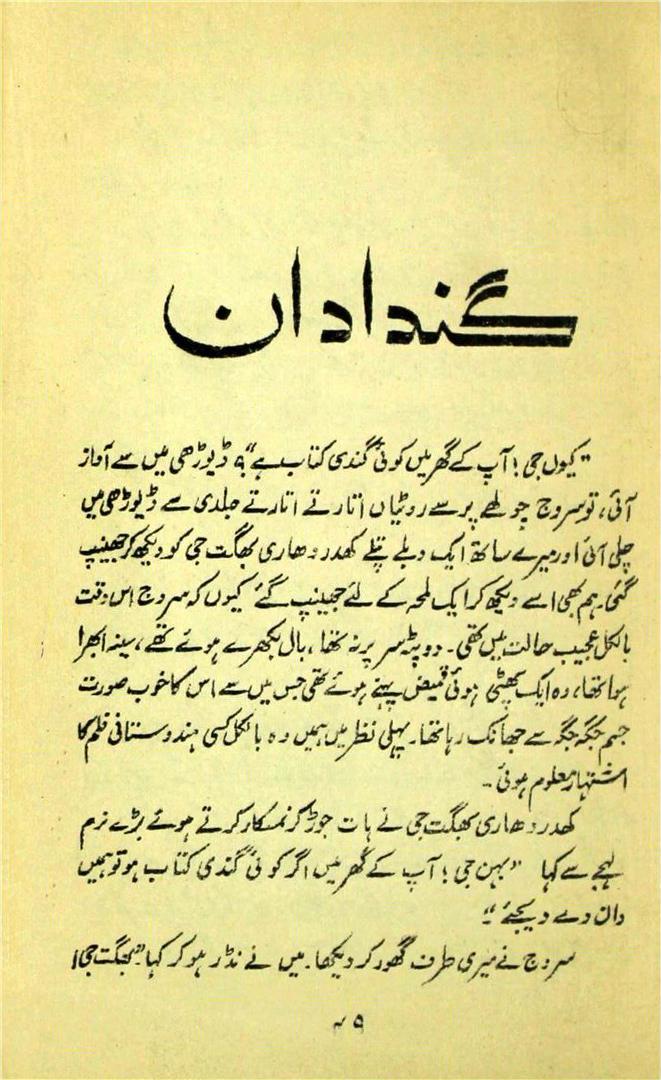 گندا دان
"کیوں جی! آپ کے گھر میں کوئی گندی کتاب ہے"؟ ڈیوڑھی میں سے آواز
آئی، تو سروج چولھے پر سے روٹیاں اتارتے اتارتے جلدی سے ڈیوڑھی میں
چلی آئی اور میرے ساتھ ایک دبلے پتلے کھدر دھاری بھگت جی کو دیکھ کر جھینپ
گئی۔ ہم بھی اسے دیکھ کر ایک لمحہ کے لئے جھینپ گئے کیوں کہ سروج اس وقت
بالکل عجیب حالت میں تھی۔ دوپٹہ سر پر نہ تھا، بال بکھرے ہوئے تھے، سینہ ابھرا
ہوا تھا، وہ ایک پھٹی ہوئی قمیض پہنے ہوئے تھی جس میں سے اس کا خوب صورت
جسم جگہ جگہ سے جھانک رہا تھا۔ پہلی نظر میں ہمیں وہ بالکل کسی ہندوستانی فلم کا
اشتہار معلوم ہوئی۔
کھدر دھاری بھگت جی نے ہات جوڑ کر نمسکار کرتے ہوئے بڑے نرم
لہجے سے کہا "بہن جی! آپ کے گھر میں اگر کوئی گندی کتاب ہو تو ہمیں
دان دے دیجئے"
سروج نے میری طرف گھور کر دیکھا۔ میں نے نڈر ہو کر کہا۔ "بھگت جی!